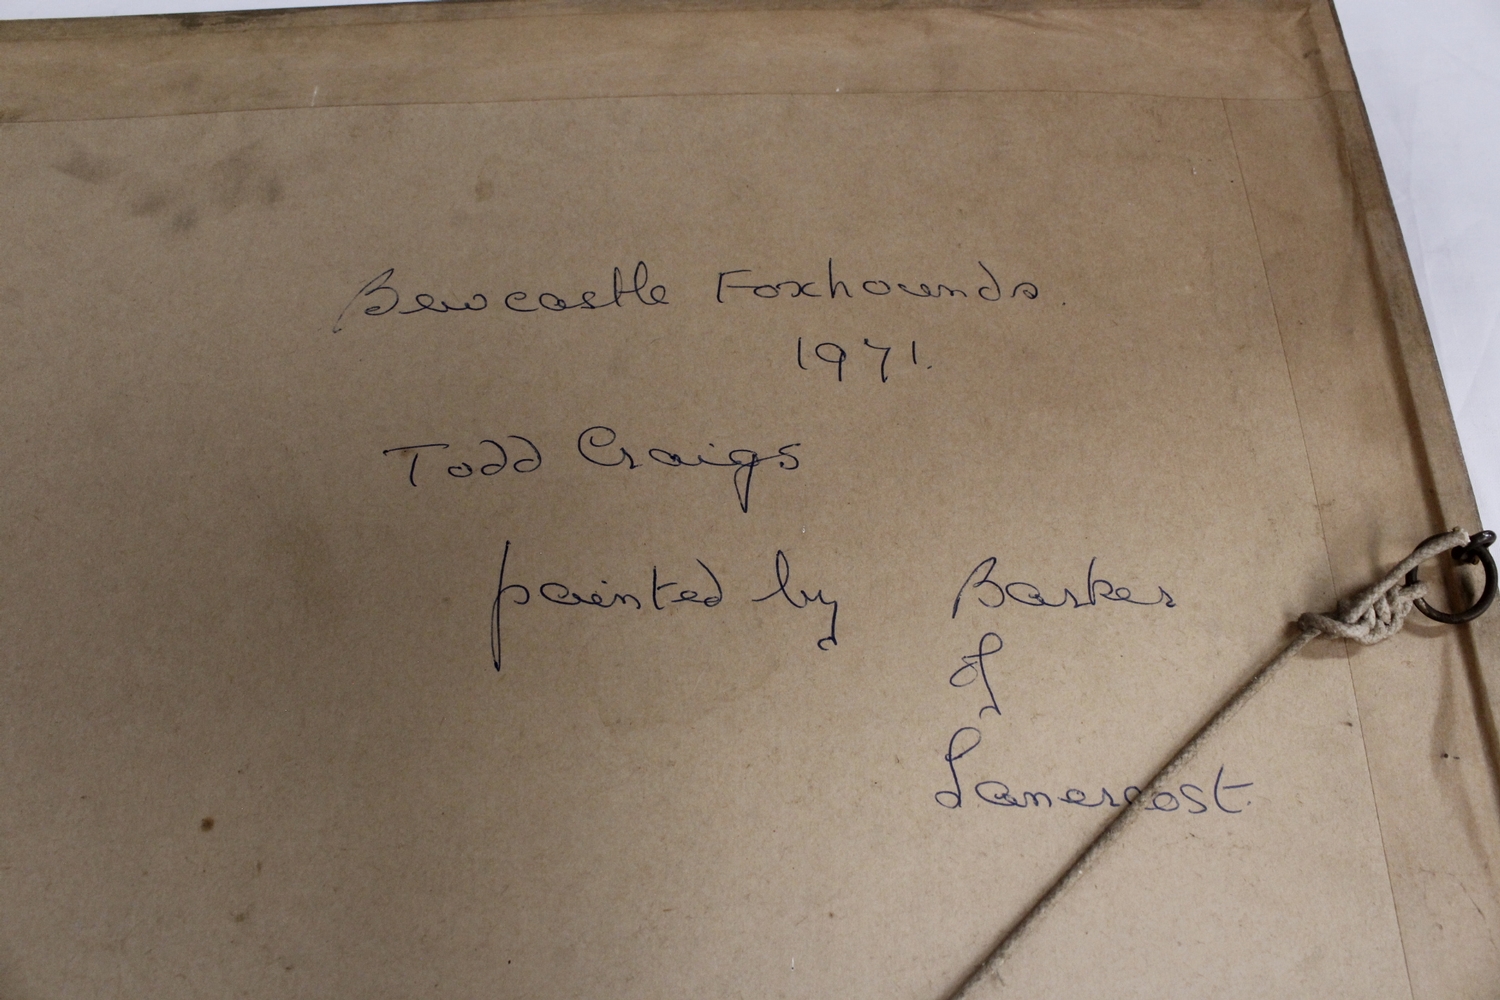 Bewcastle Foxhounds.
1971.
Todd Craigs
painted by Barker
of
Lanercost.